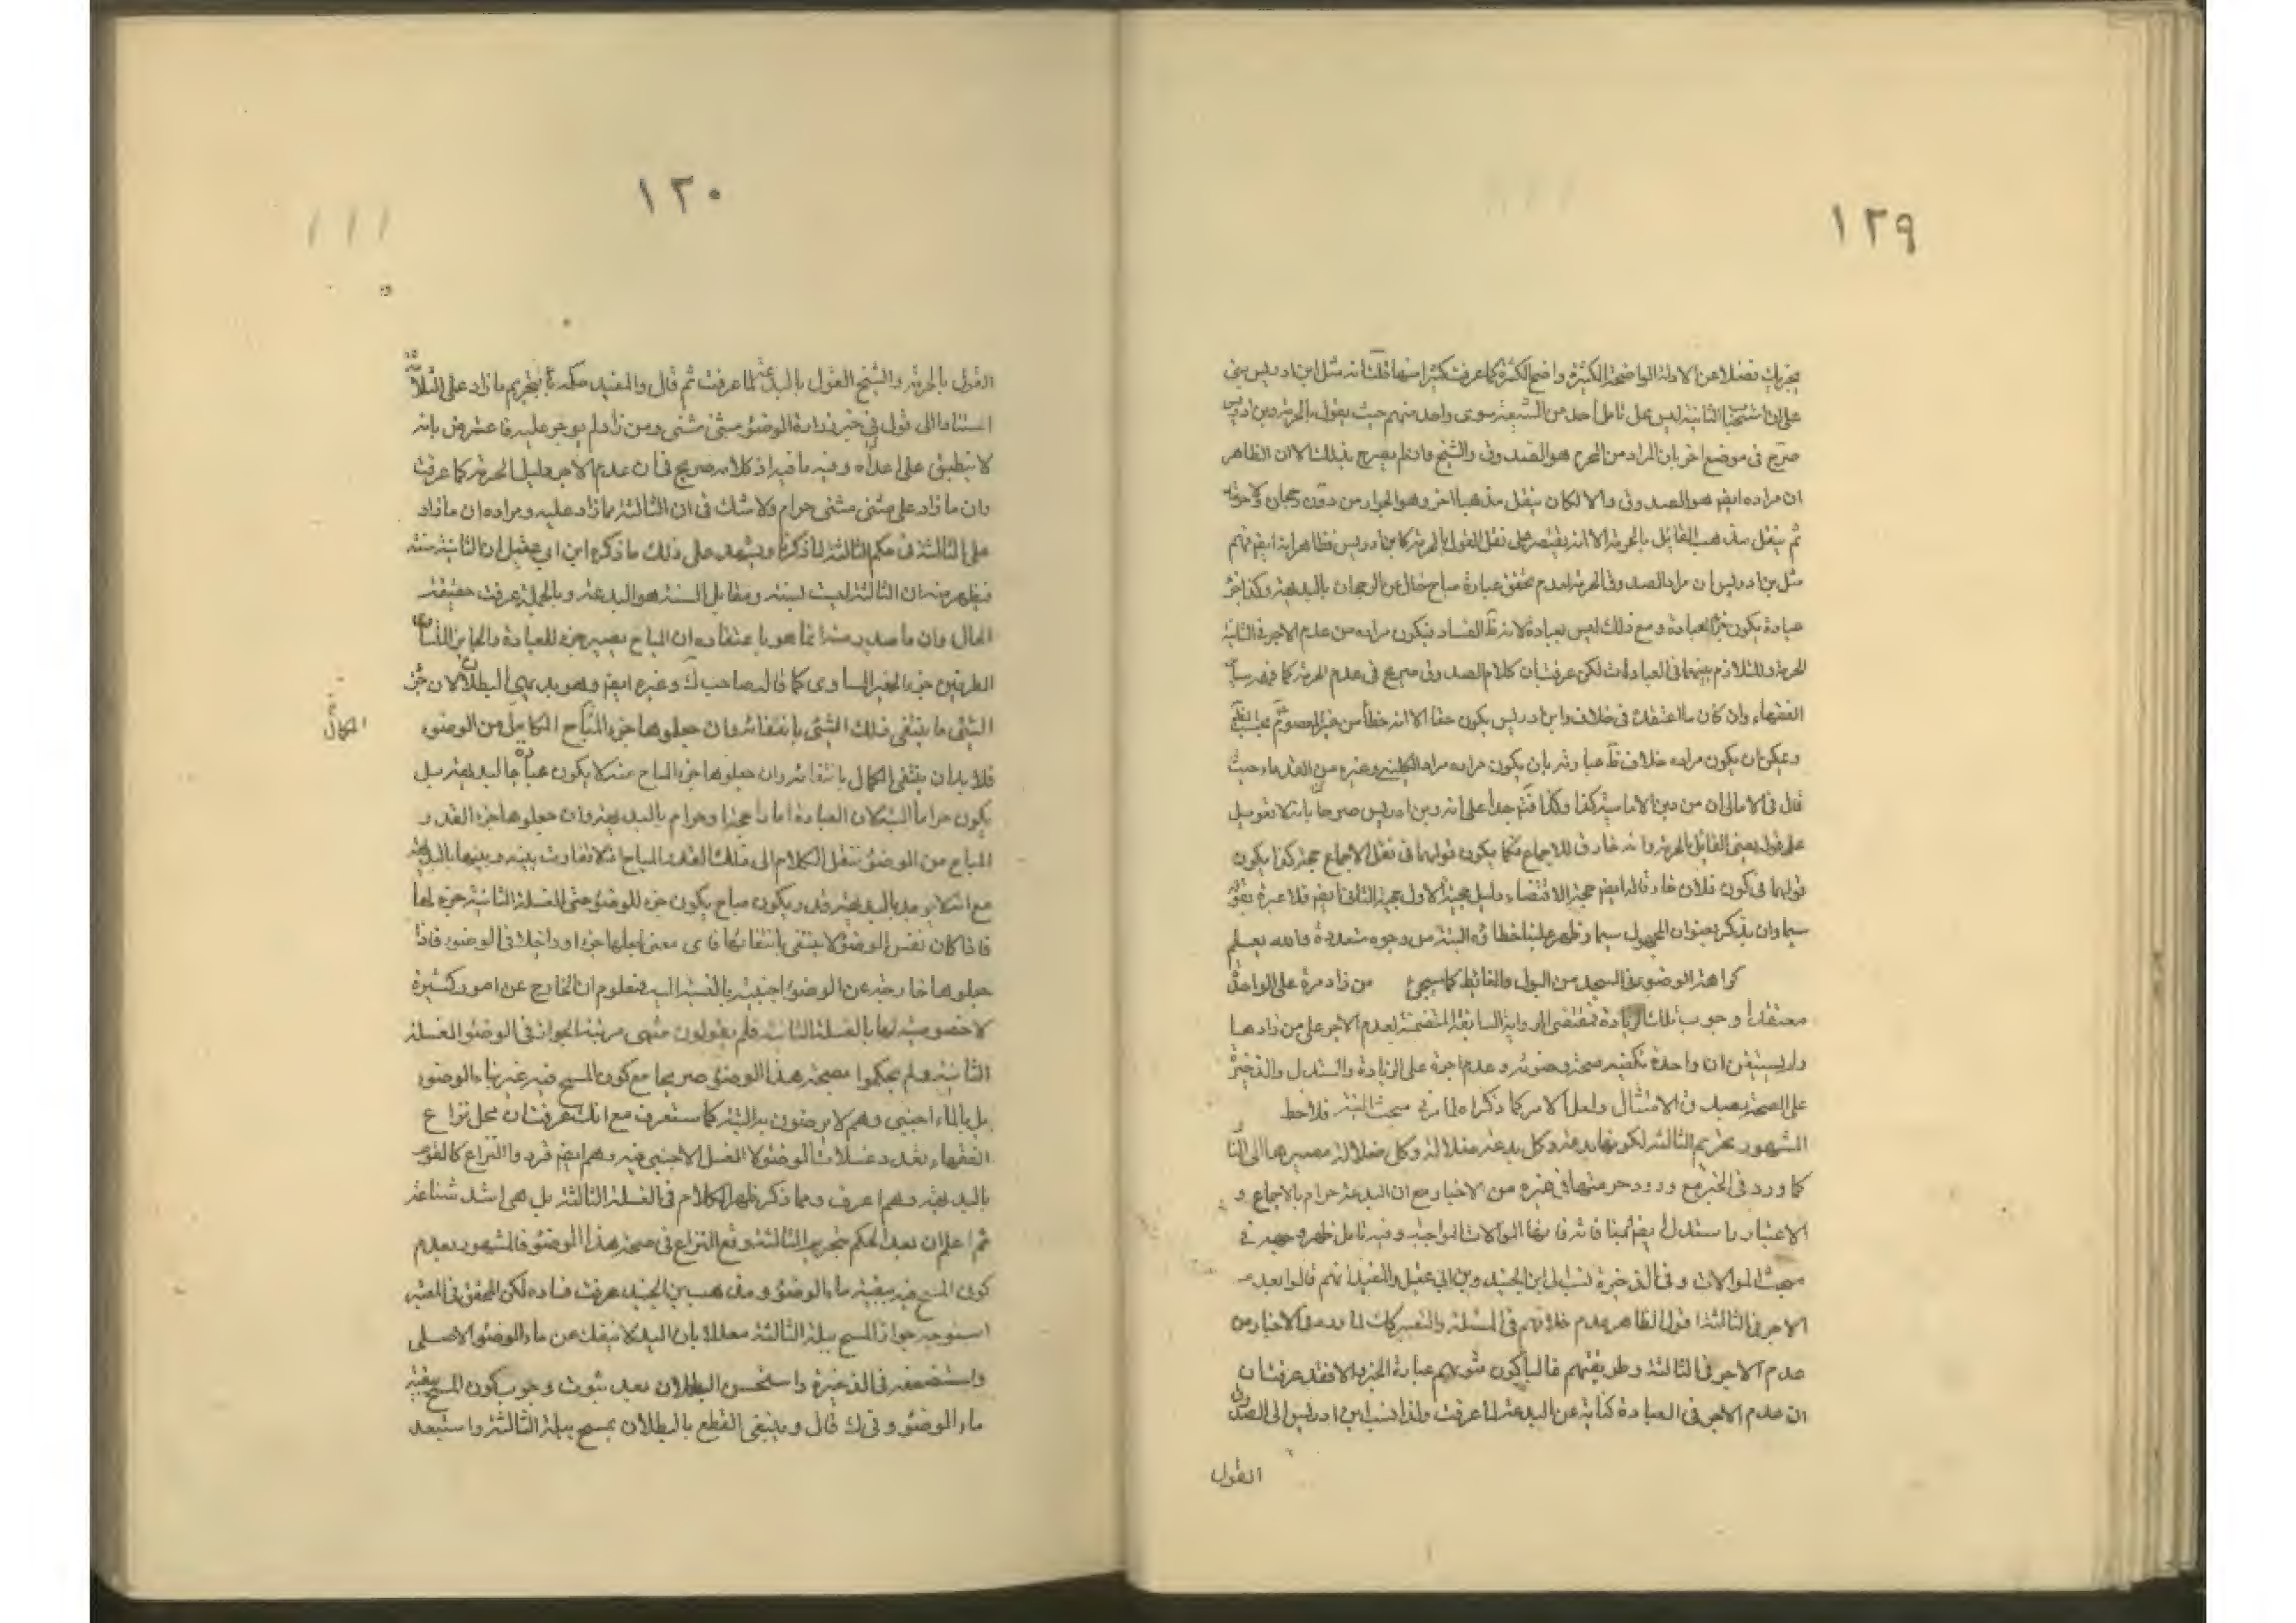 ١٢٩
بخبرك فضلا عن الادلة الواضحة الكثيرة واضح الكثرة كما عرفت كثيرا منها قلت انه مثل ابن ادريس يبنى
على ان استحباب الثانية ليس محل تامل احد من الشيعة سوى واحد منهم حيث يقول بالحرمة وبن ادريس
صرح فى موضع اخر بان المراد من المحرم هو الصدوق والشيخ وان لم يصرح بذلك الا ان الظاهر
ان مراده ايضم هو الصدوق والا لكان ينقل مذهبا اخر وهو الجواز من دون رجحان ولا حرمة
ثم ينقل مذهب القائل بالحرمة الا انه يقتصر على نقل القول بالحرمة كابن ادريس فظاهر انه ايضم فهم
مثل بن ادريس ان مراد الصدوق الحرمة لعدم تحقق عبادة مباح خال عن الرجحان بالبديهة وكذا جزء
عبادة يكون جزء العبادة ومع ذلك ليس بعبادة لانه ظ الفساد فيكون مراده من عدم الاجر فى الثانية
الحرمة للتلازم بينهما فى العبادات لكن عرفت ان كلام الصدوق صريح فى عدم الحرمة كما فهمه سائر
الفقهاء وان كان ما اعتقدت فى خلاف وابن ادريس يكون حقا الا انه خطأ من غير المعصوم
ويمكن ان يكون مراده خلاف ظ عبارته بان يكون مراده مراد الكلينى وغيره من القدماء حيث
قال فى الامالى ان من دين الامامية كذا وكذا فتم جدا على انه وبن ادريس صرحا بانه لا تعويل
على قول يعنى القائل بالحرمة وانه خارق للاجماع فكما يكون قولهما فى نقل الاجماع حجة كذا يكون
قولهما فى كون فلان خارقا له ايضم حجة لاقتضاء دليل حجية الاول حجية الثانى ايضم فلا عبرة بقوله
سيما وان يذكر بعنوان المجهول سيما وظهر علينا خطاؤه البتة من وجوه متعددة والله يعلم
كراهة الوضوء فى المسجد من البول والغائط كما سيجئ من زاد مرة على الواحدة
معتقدا وجوب تلك الزيادة فمقتضى الرواية السابقة المتضمنة لعدم الاجر على من زادها
ولم يستيقن ان واحدة تكفيه صحة وضوئه وعدم اجره على الزيادة واستدل والذخيرة
على الصحة بصدق الامتثال ولعل الامر كما ذكراه لما مر فى مبحث النية فلاحظ
المشهور تحريم الثالثة لكونها بدعة وكل بدعة ضلالة وكل ضلالة مصيرها الى النار
كما ورد فى الخبر مع ورود حرمتها فى غيره من الاخبار مع ان البدعة حرام بالاجماع و
الاعتبار واستدل ايضم بمنافاتها الموالات الواجبة وفيه تامل ظهر وجهه فى
مبحث الموالات وفى الذخيرة نسب الى ابن الجنيد وبن ابى عقيل والمفيد انهم قالوا بعدم
الاجر فى الثالثة اقول الظاهر عدم خلافهم فى المسئلة والتعبير كك لما ورد فى الاخبار من
عدم الاجر فى الثالثة وطريقتهم غالبا كون فتواهم عبارة الخبر والا فقد عرفت ان
ان عدم الاجر فى العبادة كناية عن البدعة لما عرفت ولذا نسب ابن ادريس الى الصدوق
القول
١٣٠
القول بالحرمة والشيخ القول بالبدعة لما عرفت ثم قال والمفيد حكم بتحريم ما زاد على الثلاث
استنادا الى قول فى خبر زرارة الوضوء مثنى مثنى ومن زاد لم يوجر عليه فاعترض بانه
لا ينطبق على مدعاه وفيه ما فيه اذ كلامه صريح فى ان عدم الاجر دليل الحرمة كما عرفت
وان ما زاد على مثنى مثنى حرام ولا شك فى ان الثالثة مما زاد عليه ومراده ان ما زاد
على الثالثة فى حكم الثالثة لما ذكرنا ويشهد على ذلك ما ذكره ابن ابى عقيل ان الثانية سنة
فيظهر منه ان الثالثة ليست بسنة ومقابل السنة هو البدعة وبالجملة عرفت حقيقة
الحال وان ما صدر منه انما هو باعتقاده ان المباح يصير جزء للعبادة والجايز المتساوى
الطرفين جزء الغير المساوى كما قاله صاحب ك وغيره ايضم وهو بديهى البطلان لان جزء
الشئ ما ينتفى ذلك الشئ بانتفائه وان جعلوها جزء المباح الكامل من الوضوء
الكامل
فلا بد ان ينتفى الكمال بانتفائه وان جعلوها جزء المباح منه لا يكون عبادة بالبديهة بل
يكون حراما البتة لان العبادة اما راجحة او حرام بالبديهة وان جعلوها جزء القدر
المباح من الوضوء ننقل الكلام الى ذلك القدر المباح اذ لا تفاوت بينه وبينها بالبديهة
مع انه لا يوجد بالبديهة قدر يكون مباح يكون جزء للوضوء حتى الغسلة الثانية جزء لها
فاذا كان نفس الوضوء لا ينتفى بانتفائها فاى معنى لجعلها جزءا وداخلا فى الوضوء فاذا
جعلوها خارجة عن الوضوء اجنبية بالنسبة اليه فمعلوم ان الخارج عن امور كثيرة
لا خصوصية لها بالغسلة الثانية فلم يقولون منتهى مرتبة الجواز فى الوضوء الغسلة
الثانية ولم يحكموا بصحة هذا الوضوء صريحا مع كون المسح فيه غير بماء الوضوء
بل بالماء اجنبى وهم لا يرضون به البتة كما ستعرف مع انك عرفت ان محل نزاع
الفقهاء تعدد غسلات الوضوء لا الغسل الاجنبى فيه وهم ايضم قرروا النزاع كالقوم
بالبديهة وهم اعرف ومما ذكر ظهر الكلام فى الغسلة الثالثة بل هى اشد شناعة
ثم اعلم ان بعد الحكم بتحريم الثالثة وقع النزاع فى صحة هذا الوضوء فالمشهور بعدم
كون المسح فيه ببقية ماء الوضوء ومذهب بن الجنيد عرفت فساده لكن المحقق فى المعتبر
استوجه جواز المسح ببلة الثالثة معللا بان اليد لا ينفك عن ماء الوضوء الاصلى
واستضعفه فى الذخيرة واستحسن البطلان بعد ثبوت وجوب كون المسح ببقية
ماء الوضوء وفى ك قال وينبغى القطع بالبطلان بمسح ببلة الثالثة واستبعد